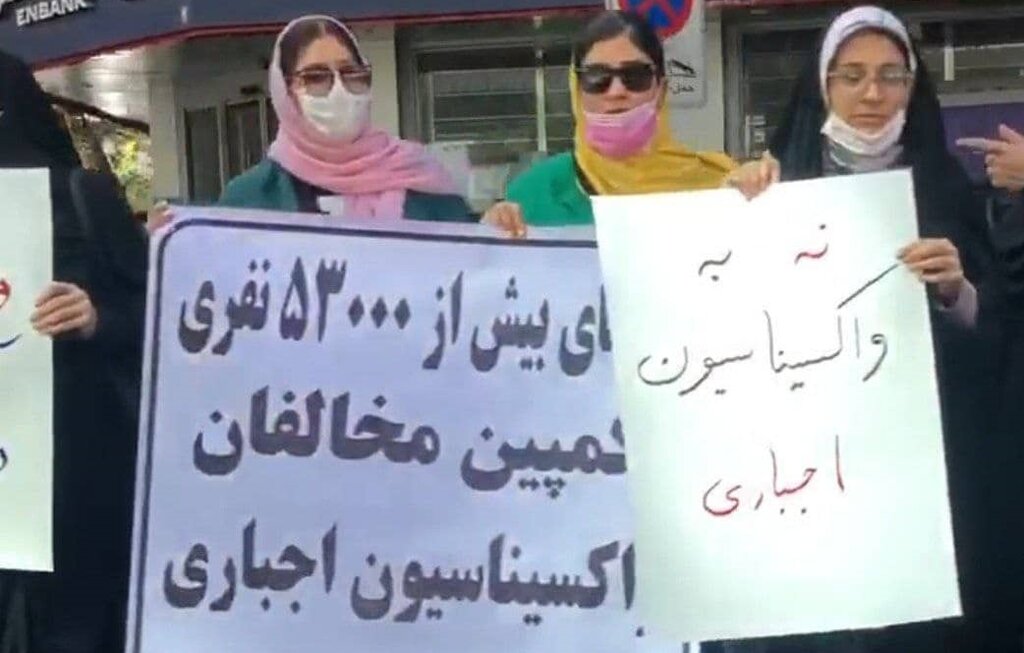 ENBANK
نه به
واکسیناسیون
اجباری
بیش از ۵۳۰۰۰ نفری
کمپین مخالفان
واکسیناسیون اجباری